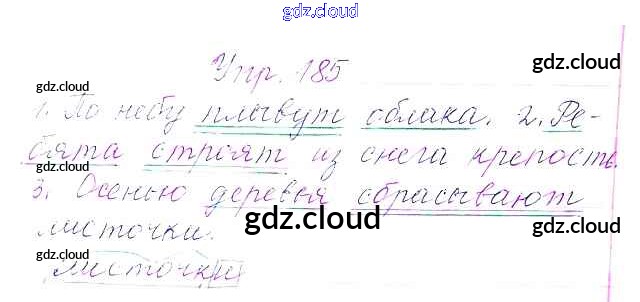 gdz.cloud
gdz.cloud
Упр. 185
gdz.cloud
gdz.cloud
1. По небу плывут облака. 2. Ре-
gdz.cloud
бята строят из снега крепость.
gdz.cloud
gdz.cloud
3. Осенью деревья сбрасывают
gdz.cloud
листочки.
gdz.cloud
gdz.cloud
листочки